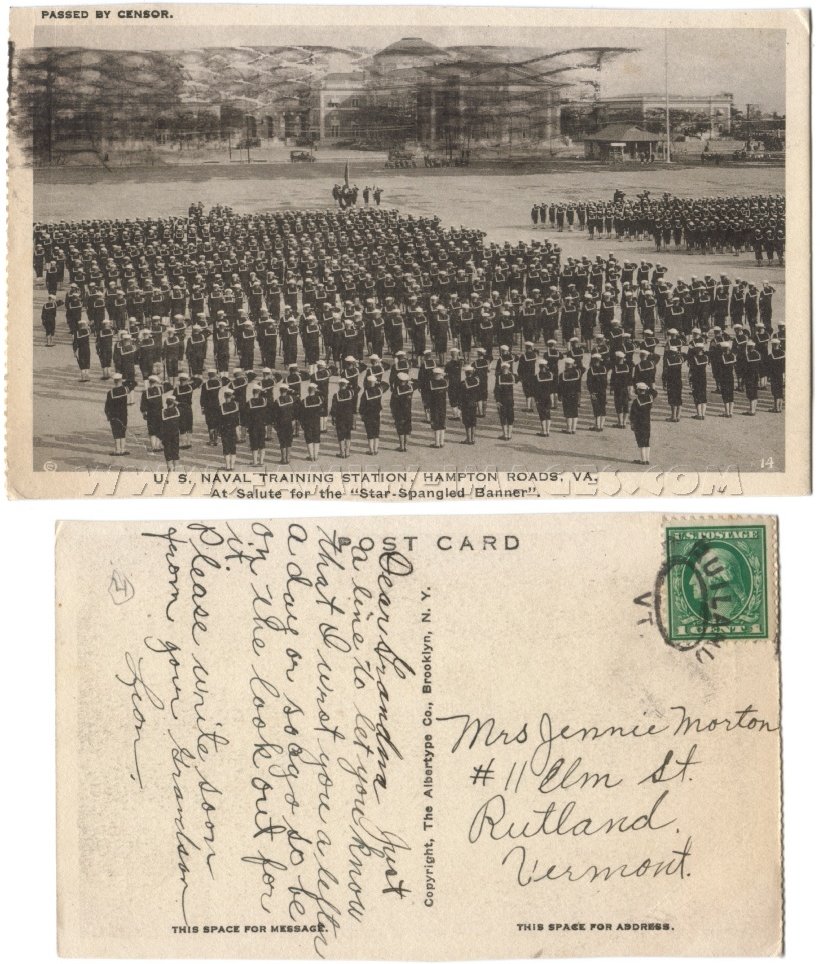 PASSED BY CENSOR.
©
14
U. S. NAVAL TRAINING STATION, HAMPTON ROADS, VA.
At Salute for the "Star-Spangled Banner".
POST CARD
U.S. POSTAGE
1 CENT 1
RUTLAND
VT
Dear Grandma Just
a line to let you know
that I wrot you a letter
a day or so ago so be
on the look out for
it.
Please write soon
from your Grandson
Leon.
Copyright, The Albertype Co., Brooklyn, N. Y.
Mrs Jennie Morton
#11 Elm St.
Rutland.
Vermont.
THIS SPACE FOR MESSAGE.
THIS SPACE FOR ADDRESS.